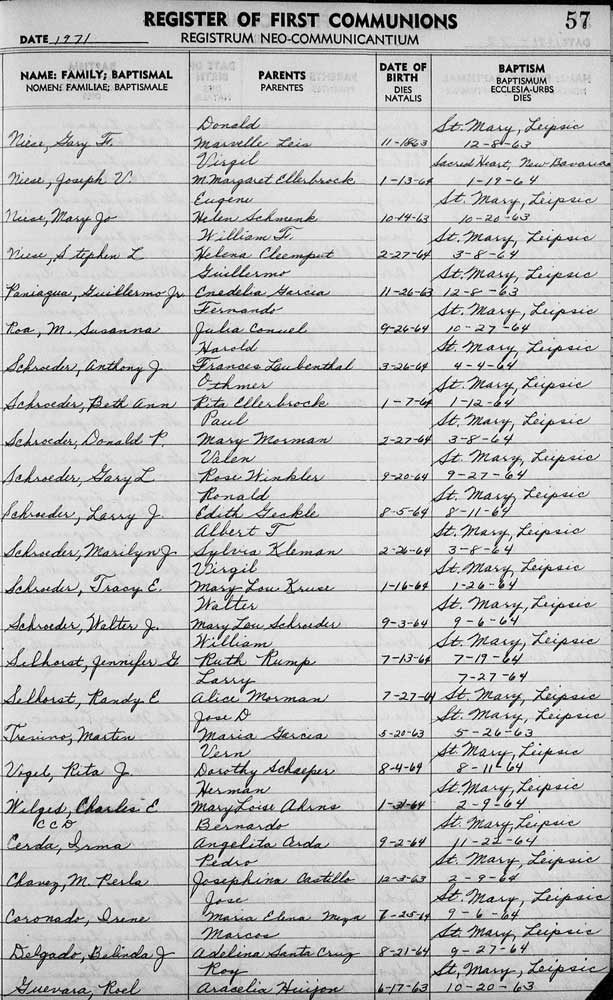 REGISTER OF FIRST COMMUNIONS 57
DATE 1971 REGISTRUM NEO-COMMUNICANTIUM
NAME: FAMILY; BAPTISMAL PARENTS DATE OF BIRTH BAPTISM
NOMEN: FAMILIAE; BAPTISMALE PARENTES DIES NATALIS BAPTISMUM ECCLESIA-URBS DIES
Donald St. Mary, Leipsic
Niese, Gary F. Marvelle Leis 11-18-63 12-8-63
Virgil Sacred Heart, New Bavaria
Niese, Joseph V. M. Margaret Ellerbrock 1-13-64 1-19-64
Eugene St. Mary, Leipsic
Niese, Mary Jo Helen Schmenk 10-14-63 10-20-63
William F. St. Mary, Leipsic
Niese, Stephen L Helena Cleemput 2-27-64 3-8-64
Guillermo St. Mary, Leipsic
Paniagua, Guillermo Jr. Enedelia Garcia 11-26-63 12-8-63
Fernando St. Mary, Leipsic
Roa, M. Susanna Julia 9-26-64 10-27-64
Harold St. Mary, Leipsic
Schroeder, Anthony J. Frances Laubenthal 3-26-64 4-4-64
Othmer St. Mary, Leipsic
Schroeder, Beth Ann Rita Ellerbrock 1-7-64 1-12-64
Paul St. Mary, Leipsic
Schroeder, Donald P. Mary Morman 2-27-64 3-8-64
Valen St. Mary, Leipsic
Schroeder, Gary L Rose Winkler 9-20-64 9-27-64
Ronald St. Mary, Leipsic
Schroeder, Larry J. Edith Geckle 8-5-64 8-11-64
Albert T St. Mary, Leipsic
Schroeder, Marilyn J. Sylvia Kleman 2-26-64 3-8-64
Virgil St. Mary, Leipsic
Schroeder, Tracy E. Mary Lou Kruse 1-16-64 1-26-64
Walter St. Mary, Leipsic
Schroeder, Walter J. Mary Lou Schroeder 9-3-64 9-6-64
William St. Mary, Leipsic
Selhorst, Jennifer G Ruth Rump 7-13-64 7-19-64
Larry 7-27-64
Selhorst, Randy E Alice Morman 7-27-64 St. Mary, Leipsic
Jose D St. Mary, Leipsic
Trevino, Martin Maria Garcia 5-20-63 5-26-63
Vern St. Mary, Leipsic
Vogel, Rita J. Dorothy Schaeper 8-4-64 8-11-64
Herman St. Mary, Leipsic
Wilged, Charles E Mary Loise Ahrns 1-31-64 2-9-64
CCD Bernardo St. Mary, Leipsic
Cerda, Irma Angelita Arda 9-2-64 11-22-64
Pedro St. Mary, Leipsic
Chavez, M. Perla Josephina Castillo 12-3-63 2-9-64
Jose St. Mary, Leipsic
Coronado, Irene Maria Elena Meza 7-25-64 9-6-64
Marcos St. Mary, Leipsic
Delgado, Belinda J Adelina Santa Cruz 8-21-64 9-27-64
Roy St. Mary, Leipsic
Guevara, Roel Aracelia 6-17-63 10-20-63